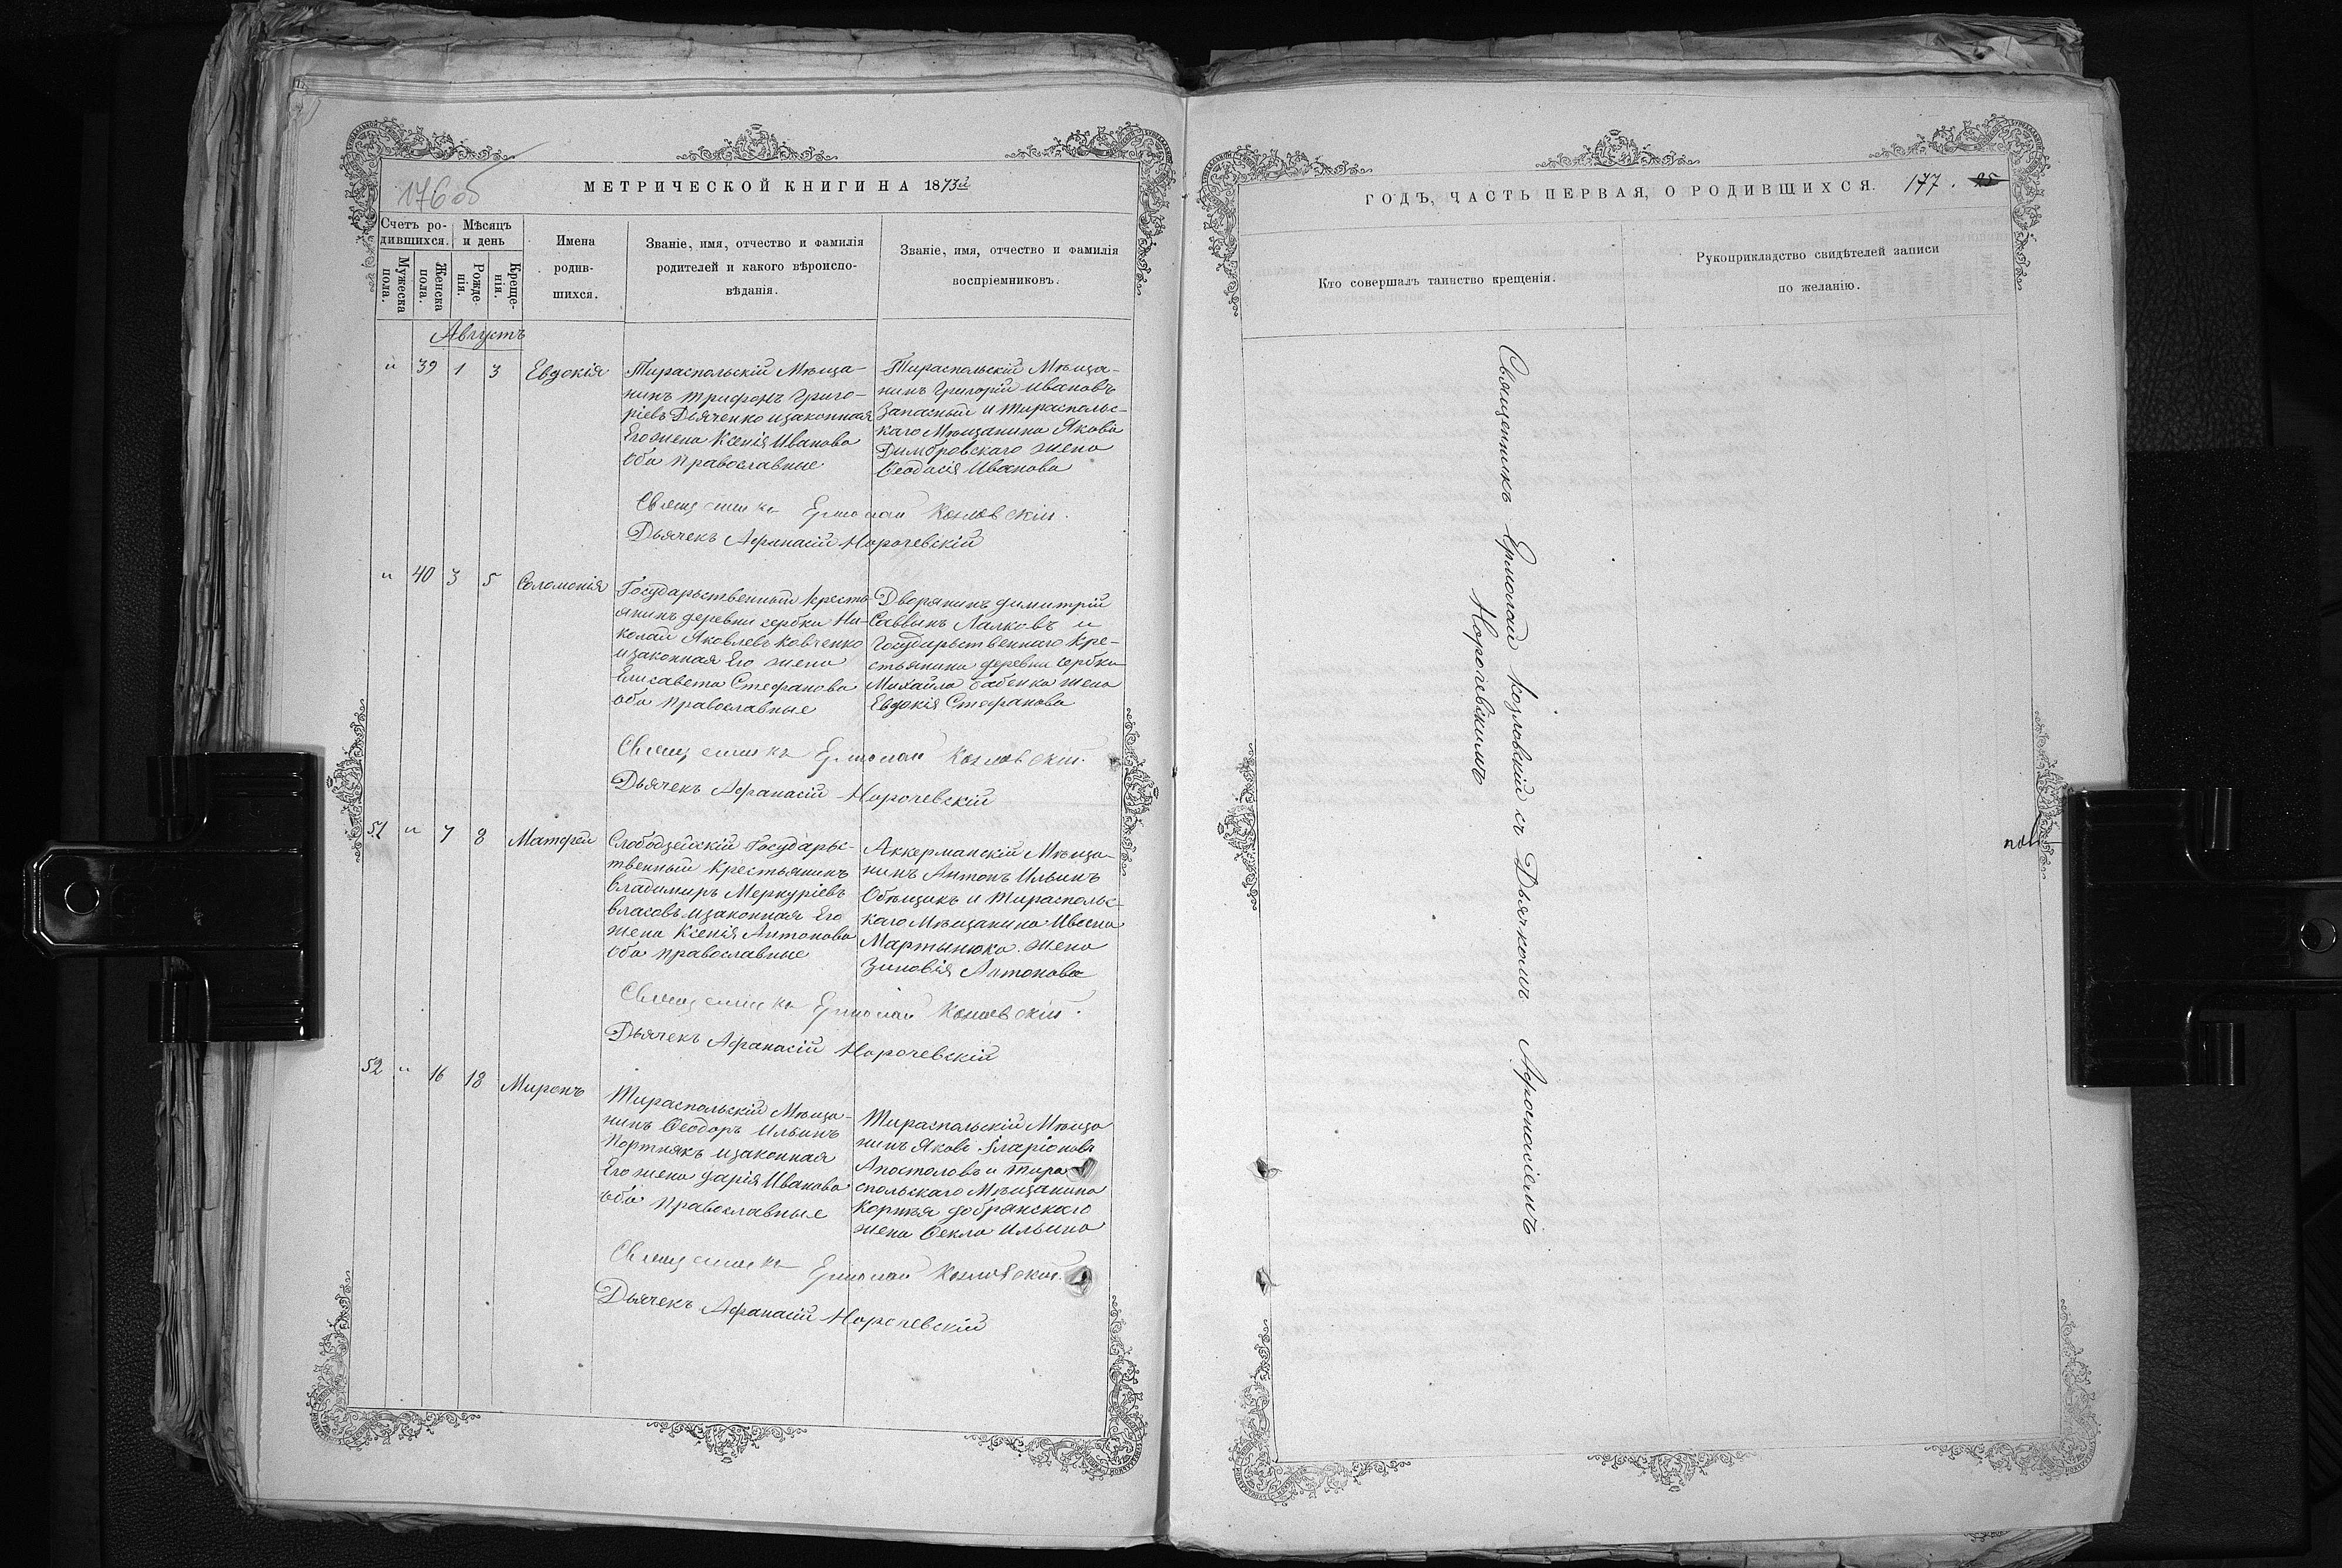 176 об
МЕТРИЧЕСКОЙ КНИГИ НА 1873й
Счетъ ро-
дившихся.
Мѣсяцъ
и день
Мужеска
пола.
Женска
пола.
Рожде-
нія.
Креще-
нія.
Имена
родив-
шихся.
Званіе, имя, отчество и фамилія
родителей и какого вѣроиспо-
вѣданія.
Званіе, имя, отчество и фамилія
воспріемниковъ.
Августъ
" 39 1 3 Евдокія
Тираспольскій Мѣща-
нинъ Трифонъ Григо-
ріевъ Дьяченко изаконная
Его жена Ксенія Иванова
оба православные
Тираспольскій Мѣща-
нинъ Григорій Ивановъ
Запасный и Тирасполь-
каго Мѣщанина Якова
Димбровскаго жена
Ѳеодосія Иванова
Священникъ Ермолай Козловскій.
Дьячекъ Афанасій Норочевскій
" 40 3 5 Соломонія
Государственный кресть-
янинъ деревни сербки Ни-
колай Яковлевъ Ковченко
изаконная Его жена
Елисавета Стефанова
оба православные
Дворянинъ Димитрій
Саввинъ Лалковъ и
Государьственнаго Кре-
стьянина деревни сербки
Михайла бабенка жена
Евдокія Стефанова
Священникъ Ермолай Козловскій.
Дьячекъ Афанасій Норочевскій
51 " 7 8 Матфей
Слободзейскій Государьс-
твенный крестьянинъ
Владимиръ Меркуріевъ
Власовъ изаконная Его
жена Ксенія Антонова
оба православные
Аккерманскій Мѣща-
нинъ Антонъ Ильинъ
Объщикъ и Тираспольс-
каго Мѣщанина Ивана
Мартынюка жена
Зиновія Антонова
Священникъ Ермолай Козловскій.
Дьячекъ Афанасій Норочевскій
52 " 16 18 Миронъ
Тираспольскій Мѣща-
нинъ Ѳеодоръ Ильинъ
Портнякъ изаконная
Его жена Дарія Иванова
оба православные
Тираспольскій Мѣща
нинъ Яковъ Іларіоновъ
Апостоловъ и Тира
спольскаго Мѣщанина
Корнѣя добрянскаго
жена Ѳекла Ильина
Священникъ Ермолай Козловскій.
Дьячекъ Афанасій Норочевскій
ГОДЪ, ЧАСТЬ ПЕРВАЯ, О РОДИВШИХСЯ. 177. 25
Кто совершалъ таинство крещенія.
Рукоприкладство свидѣтелей записи
по желанію.
Священникъ Ермолай Козловскій съ Дьячкомъ Афонасіемъ
Норочевскимъ